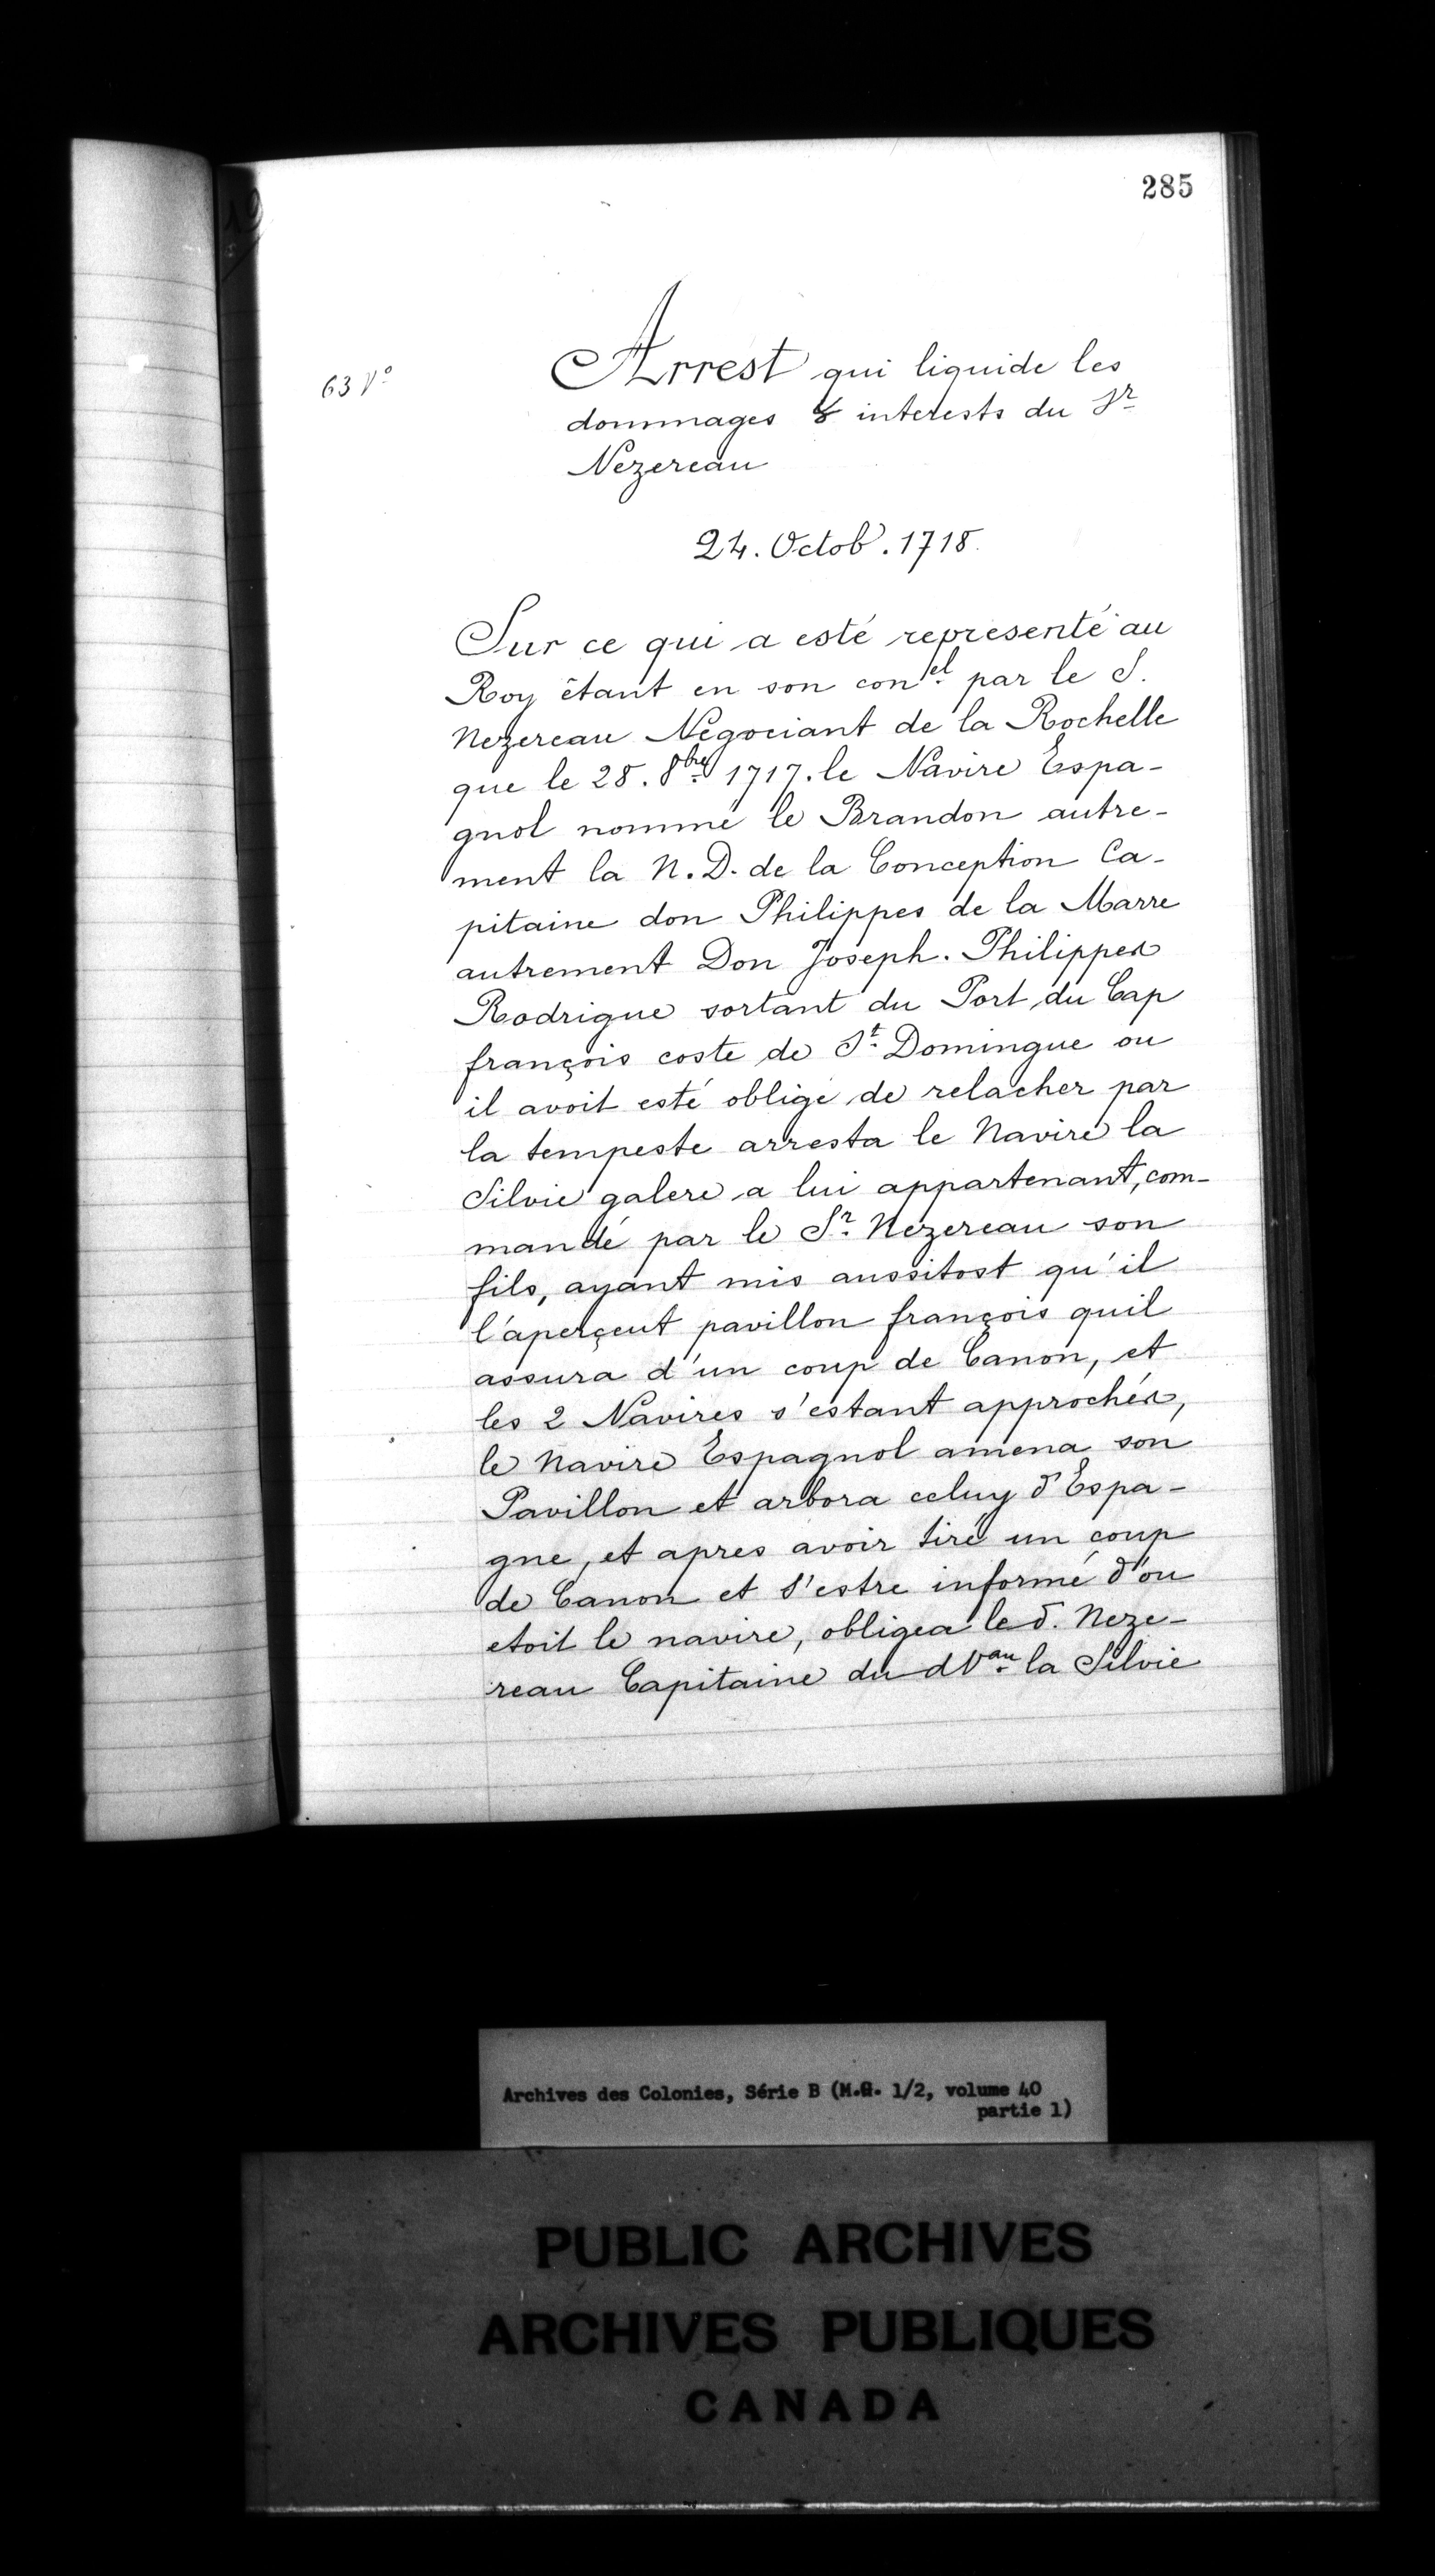 285
63 Vº
Arrest qui liquide les
dommages & interests du Sr
Nezereau
24. Octob. 1718.
Sur ce qui a esté representé au
Roy étant en son conel par le S.
Nezereau Négociant de la Rochelle
que le 28. 8bre 1717. le Navire Espa-
gnol nommé le Brandon autre-
ment la N. D. de la Conception Ca-
pitaine don Philippes de la Marre
autrement Don Joseph. Philippes
Rodrigue sortant du Port du Cap
françois coste de St Domingue ou
il avoit esté obligé de relacher par
la tempeste arresta le Navire la
Silvie galere a lui appartenant, com-
mandé par le Sr Nezereau son
fils, ayant mis aussitost qu'il
l'aperçeut pavillon françois quil
assura d'un coup de Canon, et
les 2 Navires s'estant approchés,
le Navire Espagnol amena son
Pavillon et arbora celuy d'Espa-
gne, et apres avoir tiré un coup
de Canon et s'estre informé d'ou
etoit le navire, obligea le d. Neze-
reau Capitaine du d Vau la Silvie
Archives des Colonies, Série B (M.G. 1/2, volume 40
partie 1)
PUBLIC ARCHIVES
ARCHIVES PUBLIQUES
CANADA